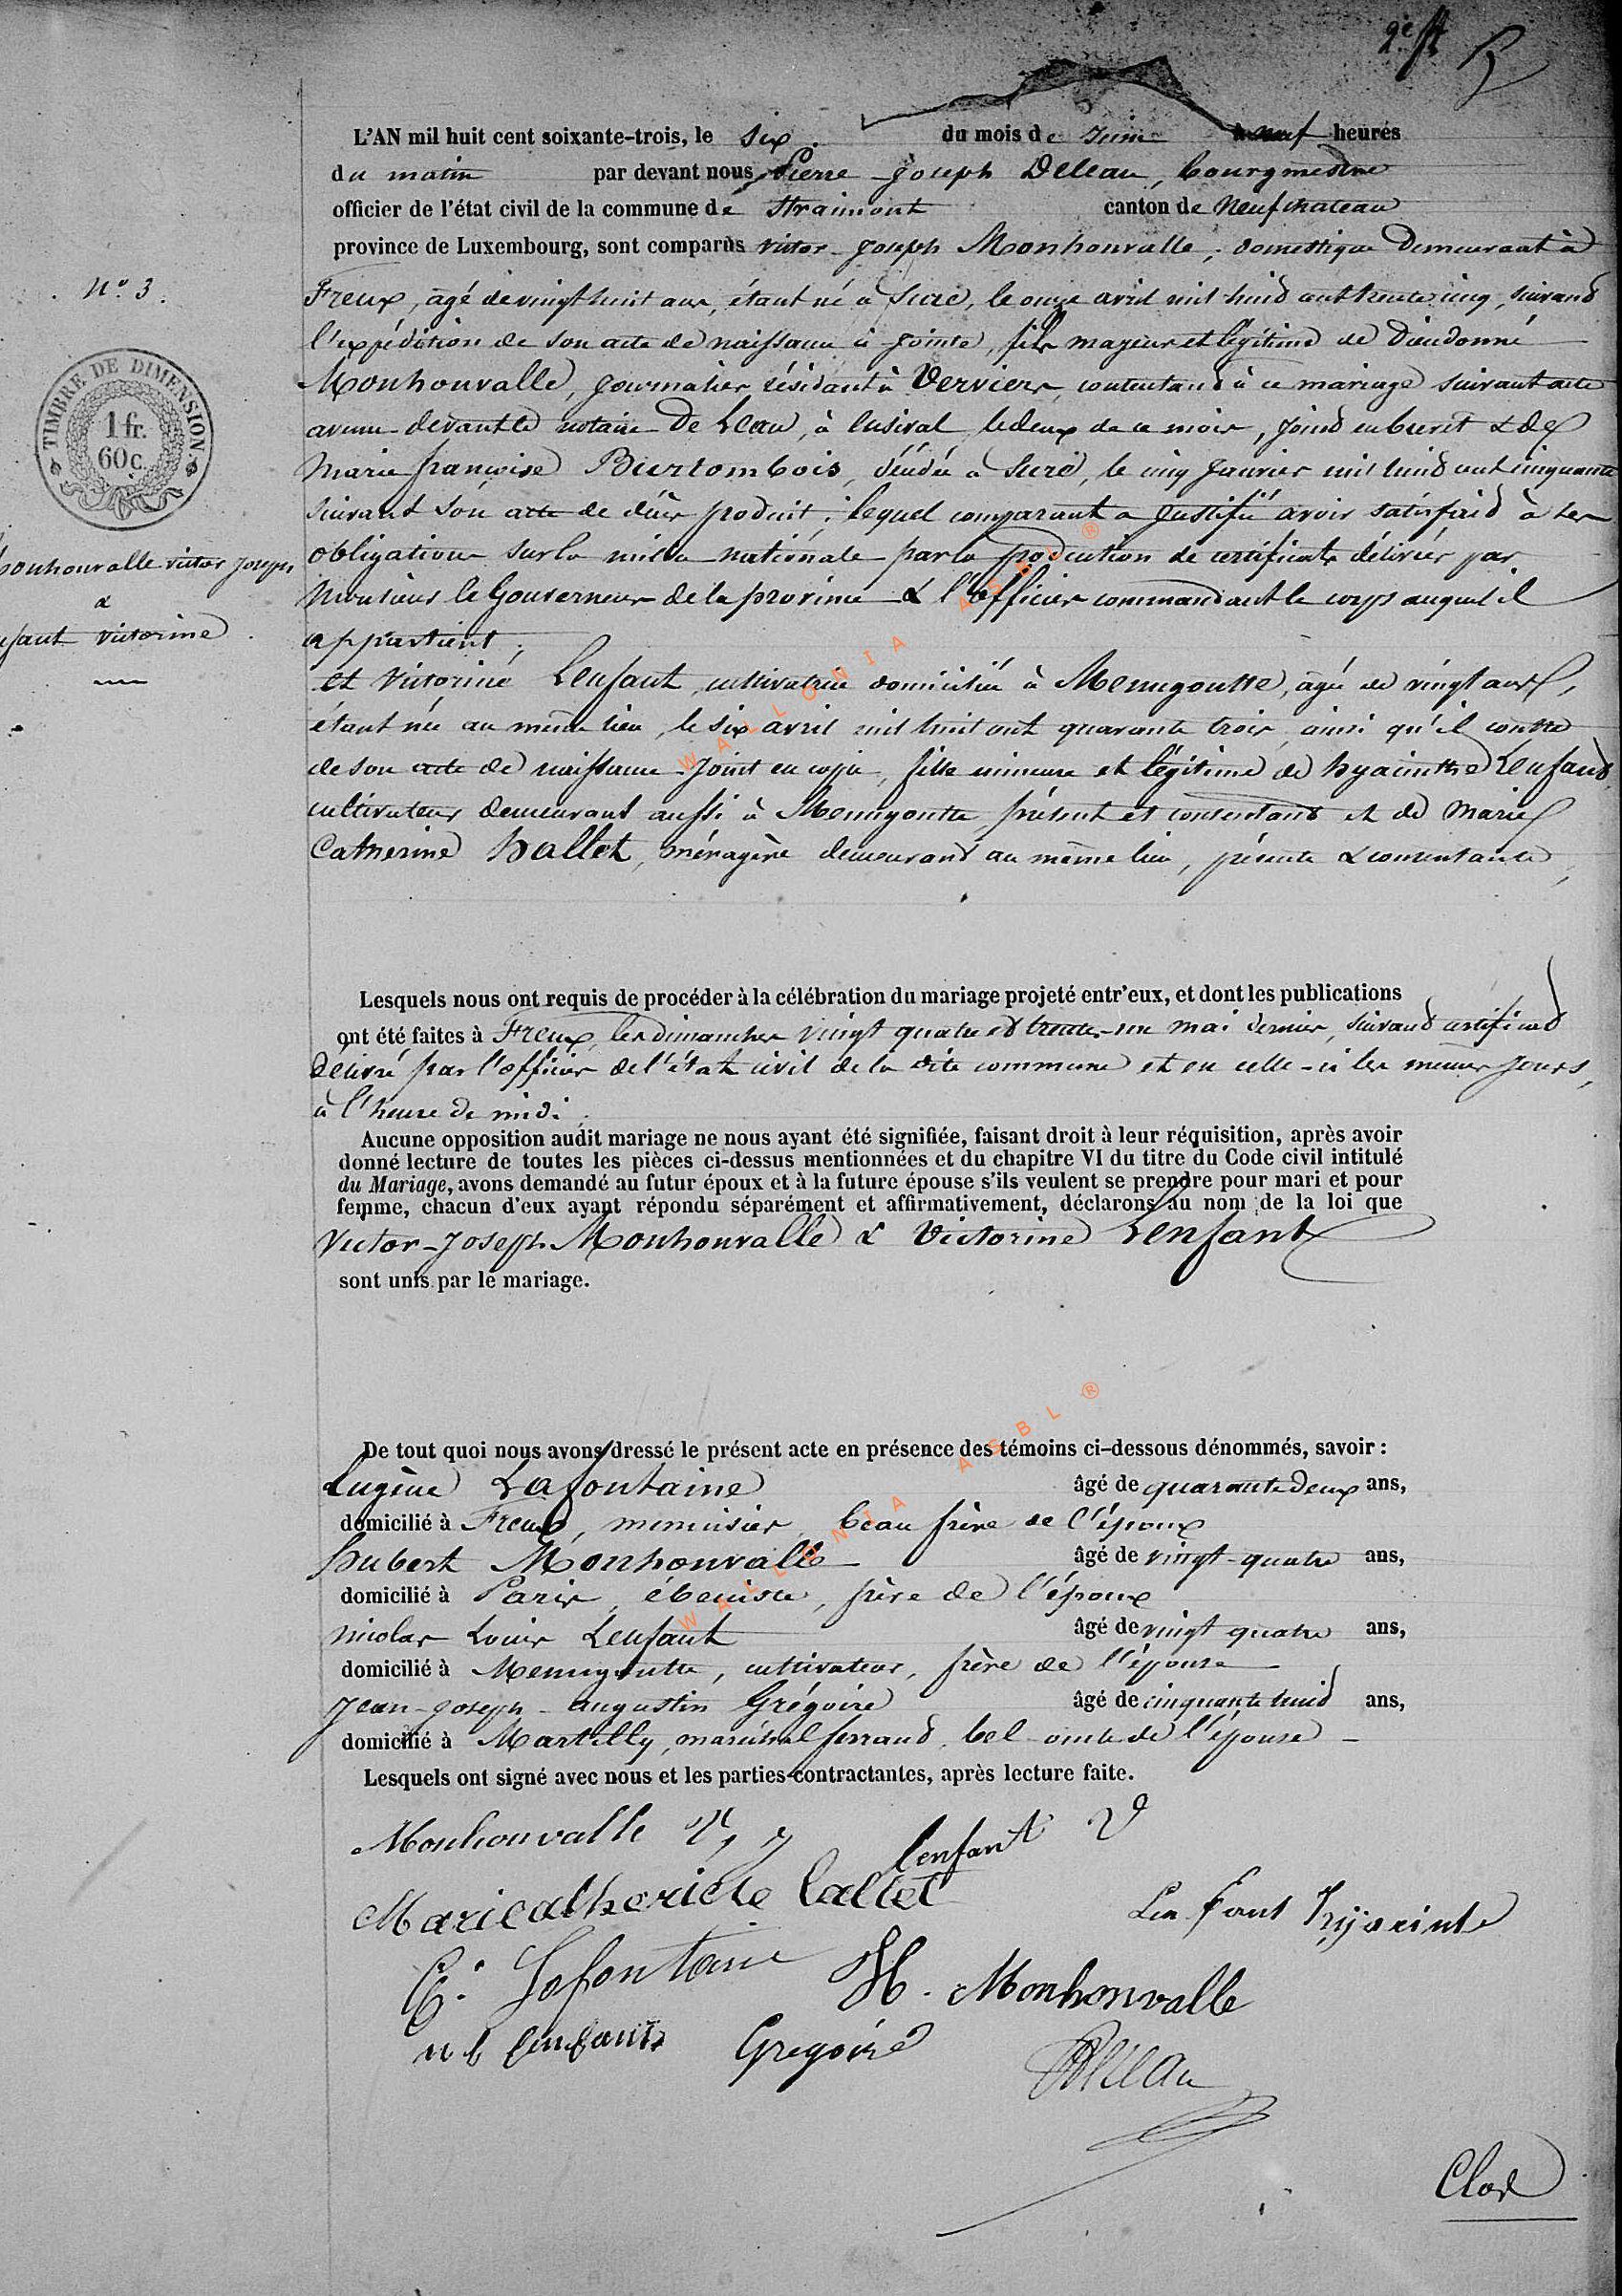 2e ft
L'AN mil huit cent soixante-trois, le six du mois de Juin à neuf heures
du matin par devant nous Pierre-Joseph Deleau, bourgmestre
officier de l'état civil de la commune de Straimont canton de Neufchateau
province de Luxembourg, sont comparus victor-Joseph Monhonvalle, domestique demeurant à
N° 3.
Freux, agé de vingt huit ans, étant né à Suré, le onze avril mil huit cent trente cinq, suivant
l'expédition de son acte de naissance ci jointe, fils majeur et légitime de Dieudonné
Monhonvalle, journalier résidant à Verviers, contentant à ce mariage suivant acte
avenu devant le notaire De Leau, à Ensival le deux de ce mois, joint en brevet & de
Marie françoise Burtombois, décédée à Suré, le cinq Janvier mil huit cent cinquante
suivant son acte de décès produit; lequel comparant a justifié avoir satisfait à ses
obligations sur la milice nationale par la production de certificats délivrés par
Monsieur le Gouverneur de la province & l'officier commandant le corps auquel il
appartient;
et Victorine Lenfant, cultivatrice domiciliée à Menugoutte, agée de vingt ans,
étant née au même lieu, le six avril mil huit cent quarante trois, ainsi qu'il conste
de son acte de naissance joint en copie, fille mineure et légitime de hyacinthe Lenfant
cultivateur demeurant aussi à Menugoutte, présent et consentant et de Marie
Catherine hallet, ménagère demeurant au même lieu, présente & consentante,
TIMBRE DE DIMENSION.
1 fr.
60 c.
onhonvalle victor Joseph
&
nfant victorine
Lesquels nous ont requis de procéder à la célébration du mariage projeté entr'eux, et dont les publications
ont été faites à Freux, les dimanches vingt quatre et trente-un mai dernier, suivant certificat
délivré par l'officier de l'état civil de la dite commune et en celle-ci les mêmes jours,
à l'heure de midi.
Aucune opposition audit mariage ne nous ayant été signifiée, faisant droit à leur réquisition, après avoir
donné lecture de toutes les pièces ci-dessus mentionnées et du chapitre VI du titre du Code civil intitulé
du Mariage, avons demandé au futur époux et à la future épouse s'ils veulent se prendre pour mari et pour
femme, chacun d'eux ayant répondu séparément et affirmativement, déclarons au nom de la loi que
Victor-Joseph Monhonvalle & Victorine Lenfant
sont unis par le mariage.
De tout quoi nous avons dressé le présent acte en présence des témoins ci-dessous dénommés, savoir :
Eugène Lafontaine âgé de quarante deux ans,
domicilié à Freux, menuisier, beau frère de l'époux
hubert Monhonvalle âgé de vingt-quatre ans,
domicilié à Paris, ébeniste, frère de l'époux
nicolas Louis Lenfant âgé de vingt quatre ans,
domicilié à Menugoutte, cultivateur, frère de l'épouse
Jean-Joseph-augustin Grégoire âgé de cinquante huit ans,
domicilié à Martilly, maréchal ferrant, bel oncle de l'épouse
Lesquels ont signé avec nous et les parties contractantes, après lecture faite.
Monhonvalle V, J lenfant V
Marie catherine hallet Lenfant hyacinte
E. Lafontaine H. Monhonvalle
n l lenfant Gregoire
PJDeleau
Clos
WALLONIA ASBL ®
WALLONIA ASBL ®